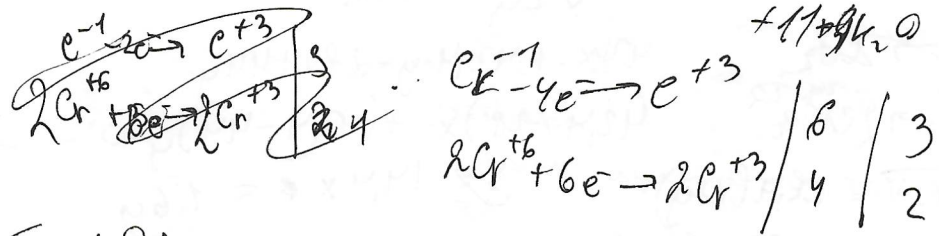 C⁻¹ - 2e⁻ → C⁺³ | 3
2Cr⁺⁶ + 6e⁻ → 2Cr⁺³ | 4
C⁻¹ - 4e⁻ → C⁺³ | 6 | 3
2Cr⁺⁶ + 6e⁻ → 2Cr⁺³ | 4 | 2